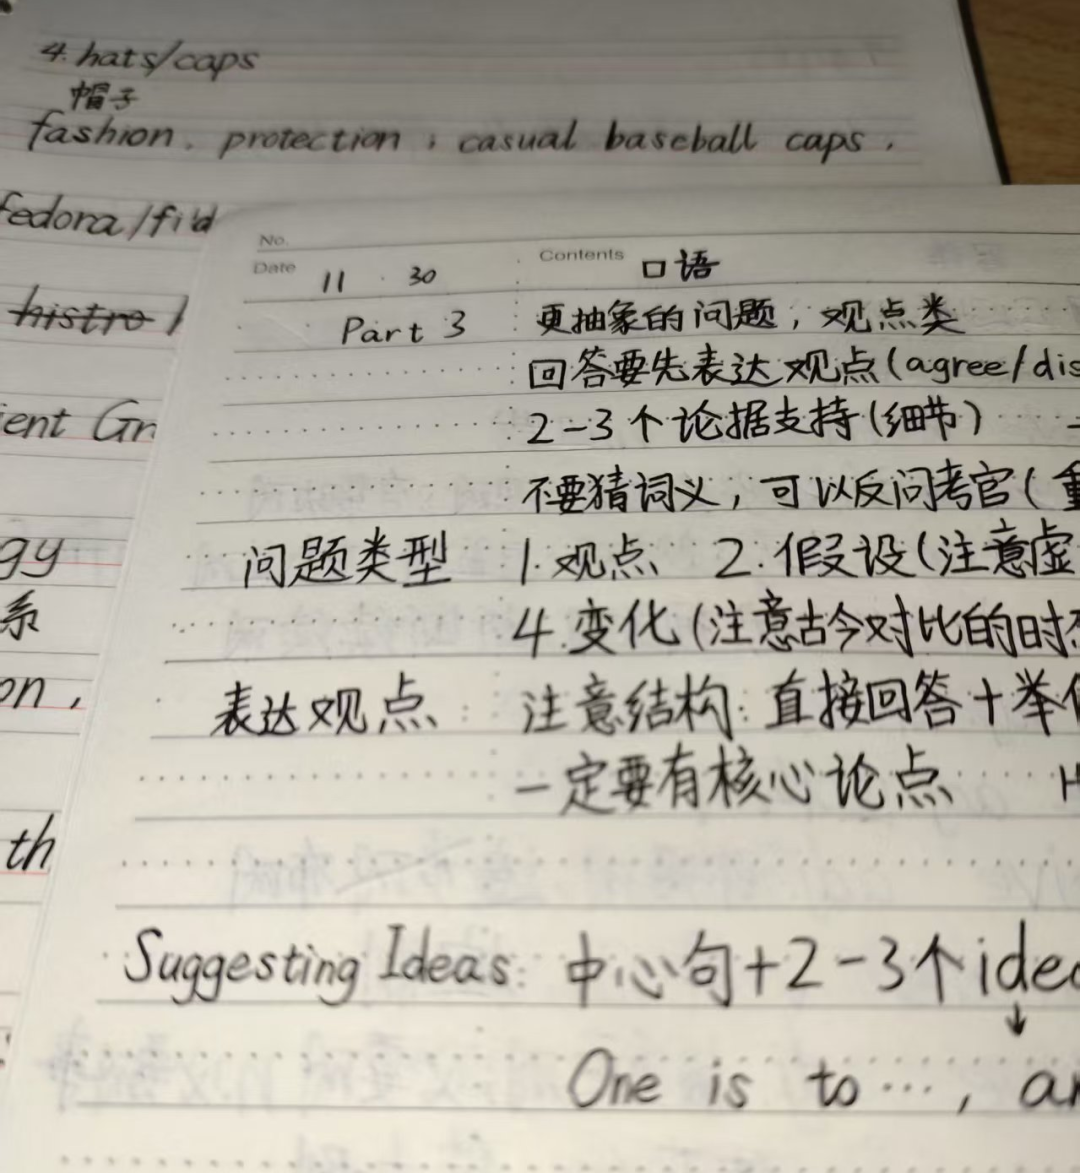 4. hats/caps
帽子
fashion、protection; casual baseball caps,
fedora/
histro
Gr
gy
系
on,
th
No.
Date 11 · 30
Contents 口语
Part 3 更抽象的问题，观点类
回答要先表达观点(agree/dis
2-3个论据支持(细节)
不要猜词义，可以反问考官(重
问题类型 1.观点 2.假设(注意虚
4.变化(注意古今对比的时
表达观点: 注意结构: 直接回答+举
一定要有核心论点 H
Suggesting Ideas: 中心句+2-3个idea
↓
One is to …, an